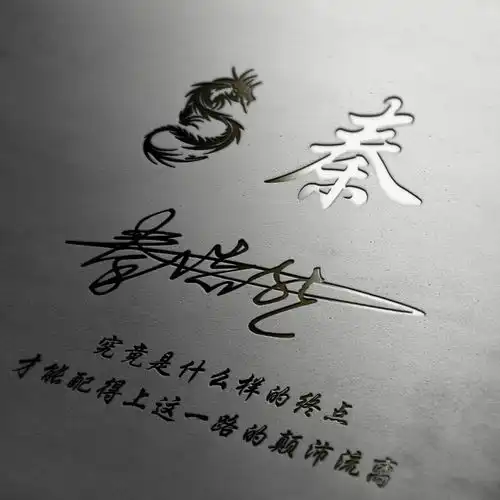 秦
究竟是什么样的终点
才能配得上这一路的颠沛流离